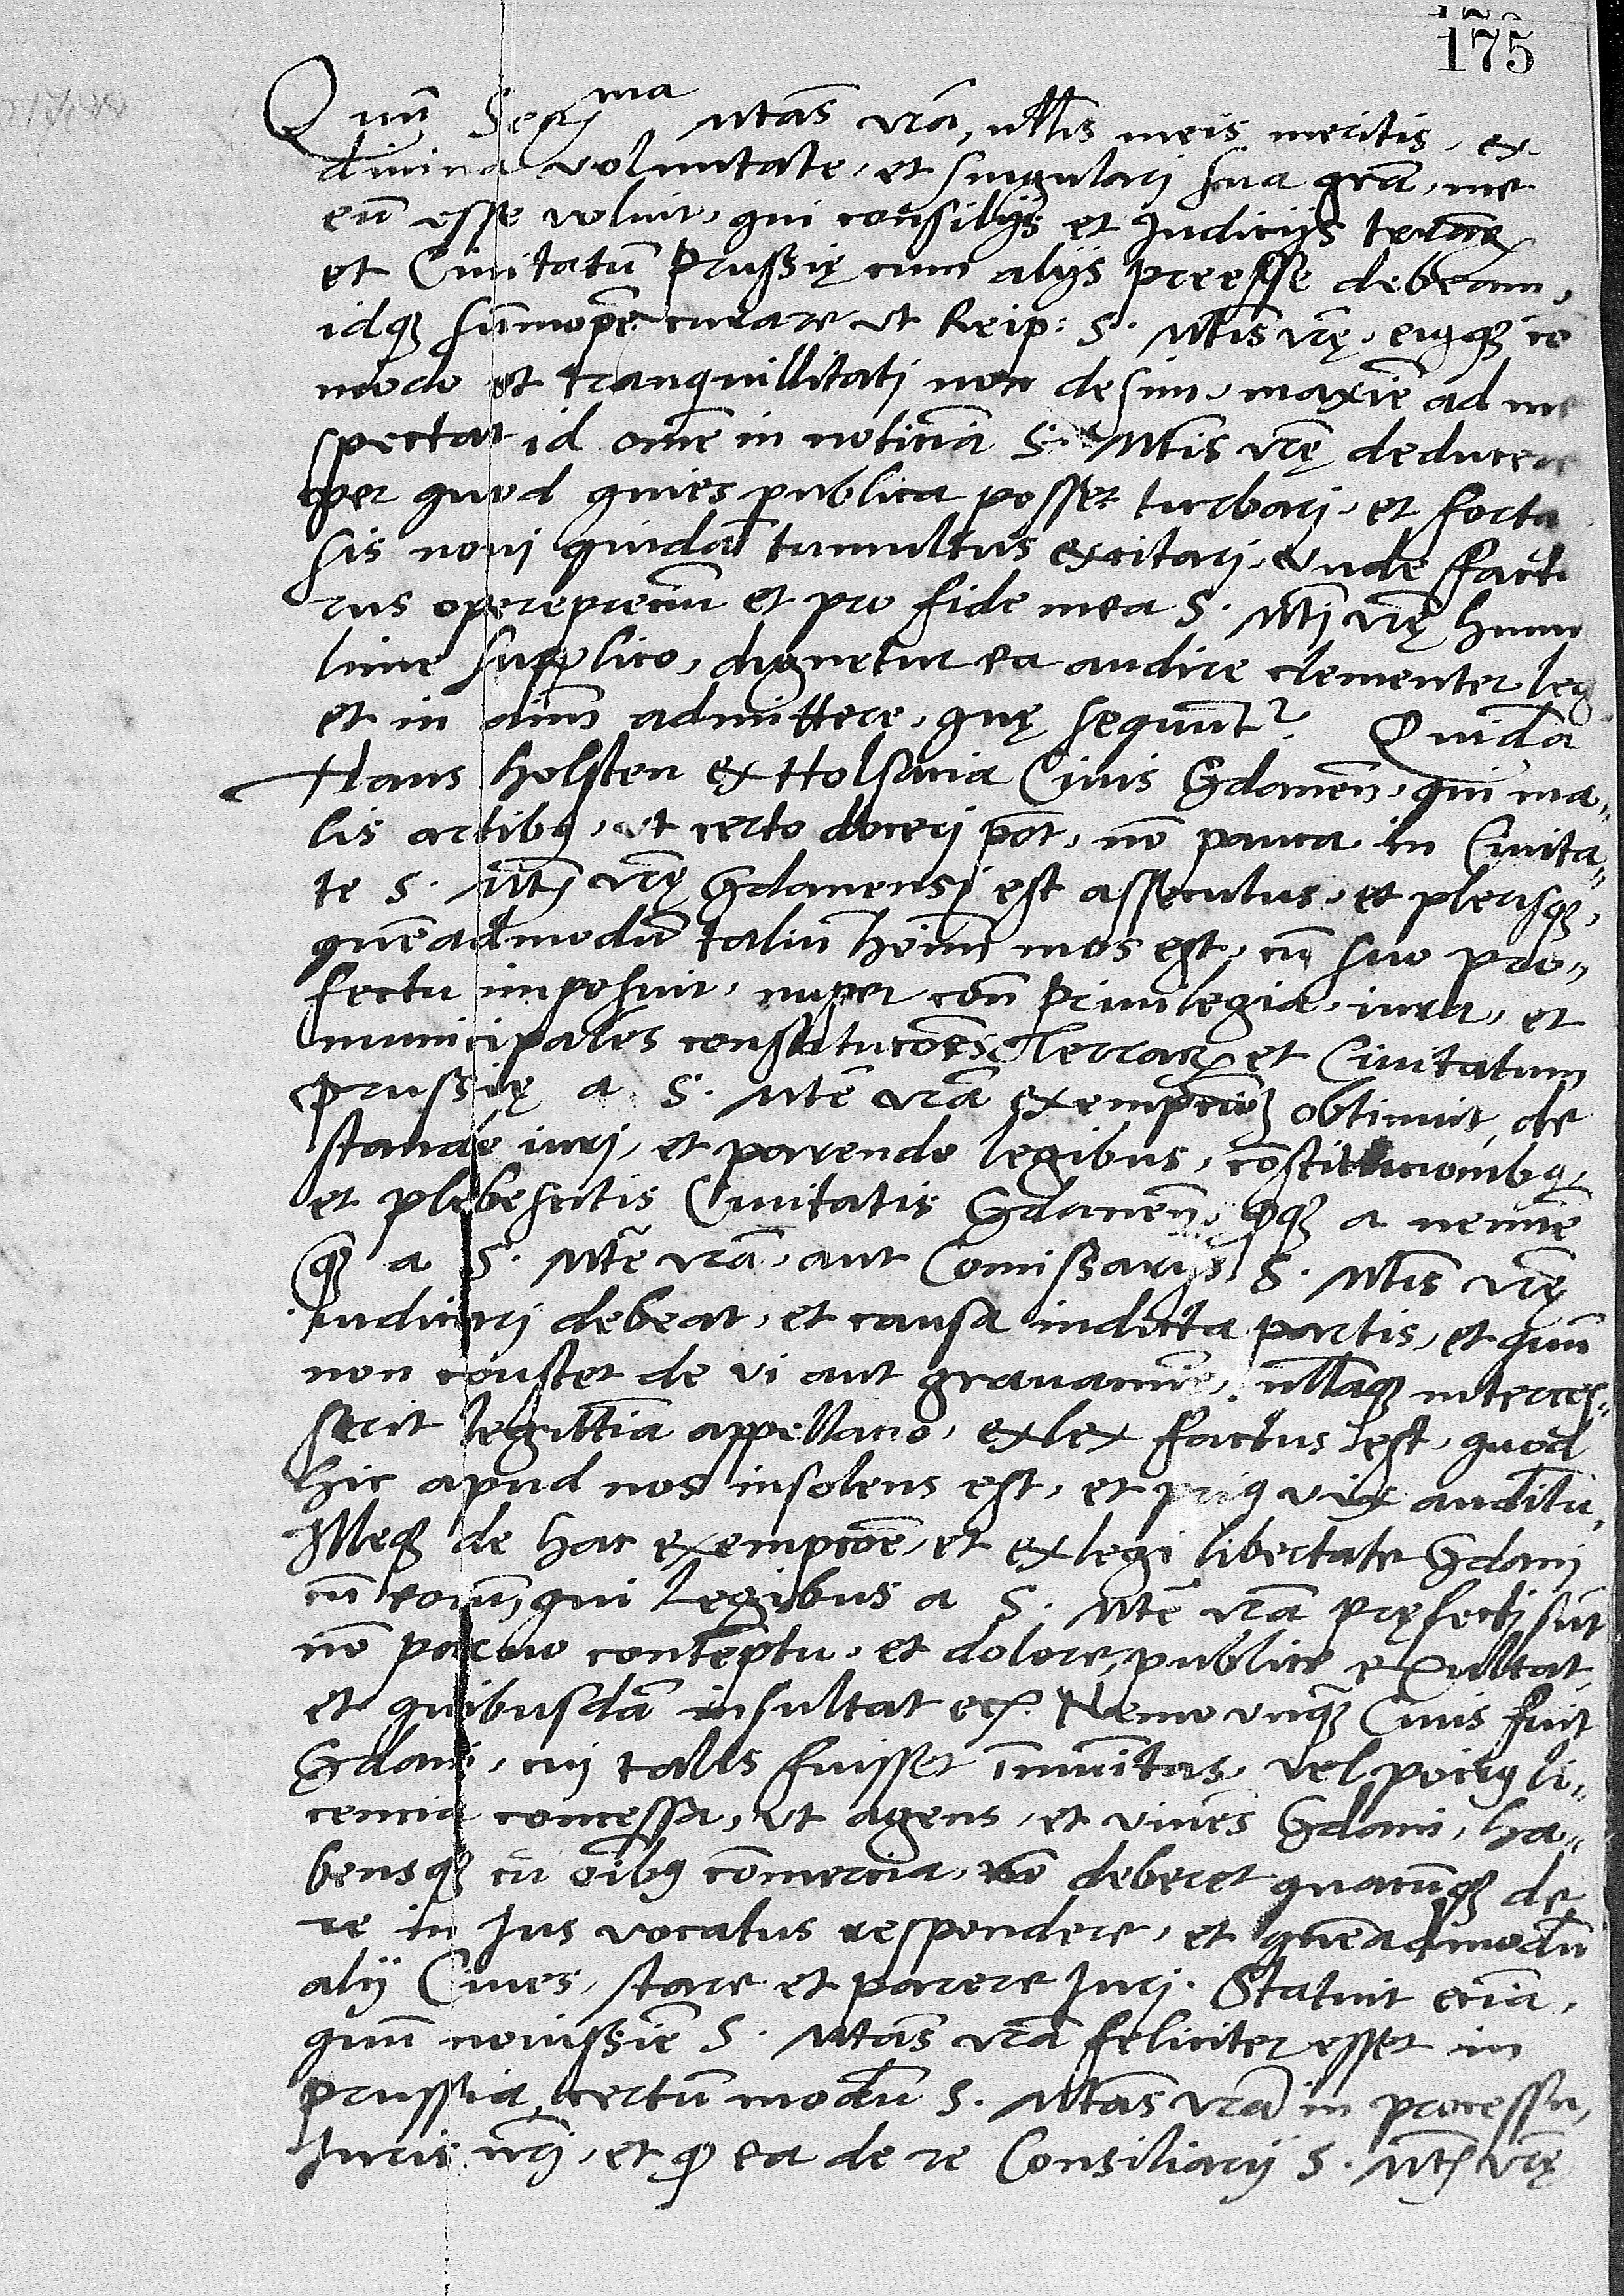 175
Quũ Serma Mtas vrã, ullis meis meritis, ex
divina voluntate, et singulari sua gr̃a, me
eũ esse voluit, qui consilijs et Iudicijs terrarꝫ
et Civitatũ Prussię cum alijs preesse debeam,
idqꝫ sũmopẽ curare ut Reip: S. Mtis vrę, eiqꝫ co
modo et tranquillitati non desim, maxiẽ ad me
spectat id oñe in noticiã S. Mtis vrę deducere
per quod quies publica posset turbari, et forta
sis novi quidã tumultus excitari, unde factu
rus operepreciũ et pro fide mea S. Mtj vrę humi
lime supplico, dignetur ea audire clementer leg
et in aĩm admittere, quę sequunt². Quidã
Hans Holsten ex Holsatia Civis Gdaneñ, qui ma„
lis artibꝯ, ut certo doceri põt, nõ pauca in Civita„
te S. Mtis vrę Gdanensi est assecutus, et plerisqꝫ,
quẽadmodũ taliũ hoĩm mos est, cũ suo pro„
fectu imposuit, nuper coñ privilegia, iura, et
municipales constitucões Terrarꝫ et Civitatum
Prussię a S. Mte vrã exempcionẽ obtinuit, de
stando iuri, et parendo legibus, constitucionibꝯ,
et plebescitis Civitatis Gdaneñ, qꝫ a nemine
qꝫ a S. Mte vrã, aut Comissarijs S. Mtis vrę
iudicari debeat, et causa indicta partis, et quũ
non constet de vi aut gravamine, ullaqꝫ interces„
serit legittĩa appellacio, exlex factus est, quod
hic apud nos insolens est, et priꝯ vix auditũ,
Isteqꝫ de hac exempcõe, et exlegi libertate Gdani
cũ eorum, qui legibus a S. Mte vrã pręfecti sũt
nõ parvo contẽptu, et dolore, publice exultat,
et quibusdã insultat ecꝫ. Nemo unqꝫ Civis fuit
Gdani, cui talis fuisset ĩmunitas, vel pociꝯ li„
cencia concessa, ut agens, et vivẽs Gdani, ha„
bensqꝫ cũ oĩbꝯ cõmercia, nõ deberet quacũqꝫ de
re in Ius vocatus respondere, et quẽadmodũ
alij Cives, stare et parere Iuri. Statuit eciã,
quũ novissiẽ S. Mtas vrã feliciter esset in
Prussia, certũ modũ S. Mtas vrã in processu,
Iuris nrĩ, et ꝙ ea de re Consiliarij S. Mtis vrę